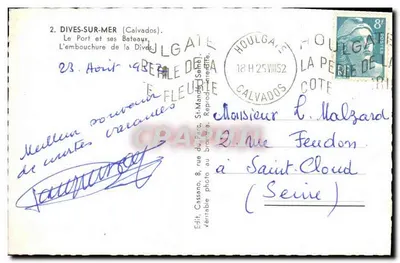 2. DIVES-SUR-MER (Calvados).
Le Port et ses Bateaux.
L'embouchure de la Dives
23 Août 1952
HOULGATE
LA PERLE DE LA
CÔTE FLEURIE
HOULGATE
18H 25 VIII 52
CALVADOS
HOULGATE
LA PERLE DE LA
CÔTE
8F
Meilleur souvenir
de nos vacances
Monsieur L. Malzard
2 rue Feudon
à Saint-Cloud
(Seine)
Edit. Cassano, 8, rue du Parc, St-Mandé (Seine).
Véritable photo au bromure. Reproduction